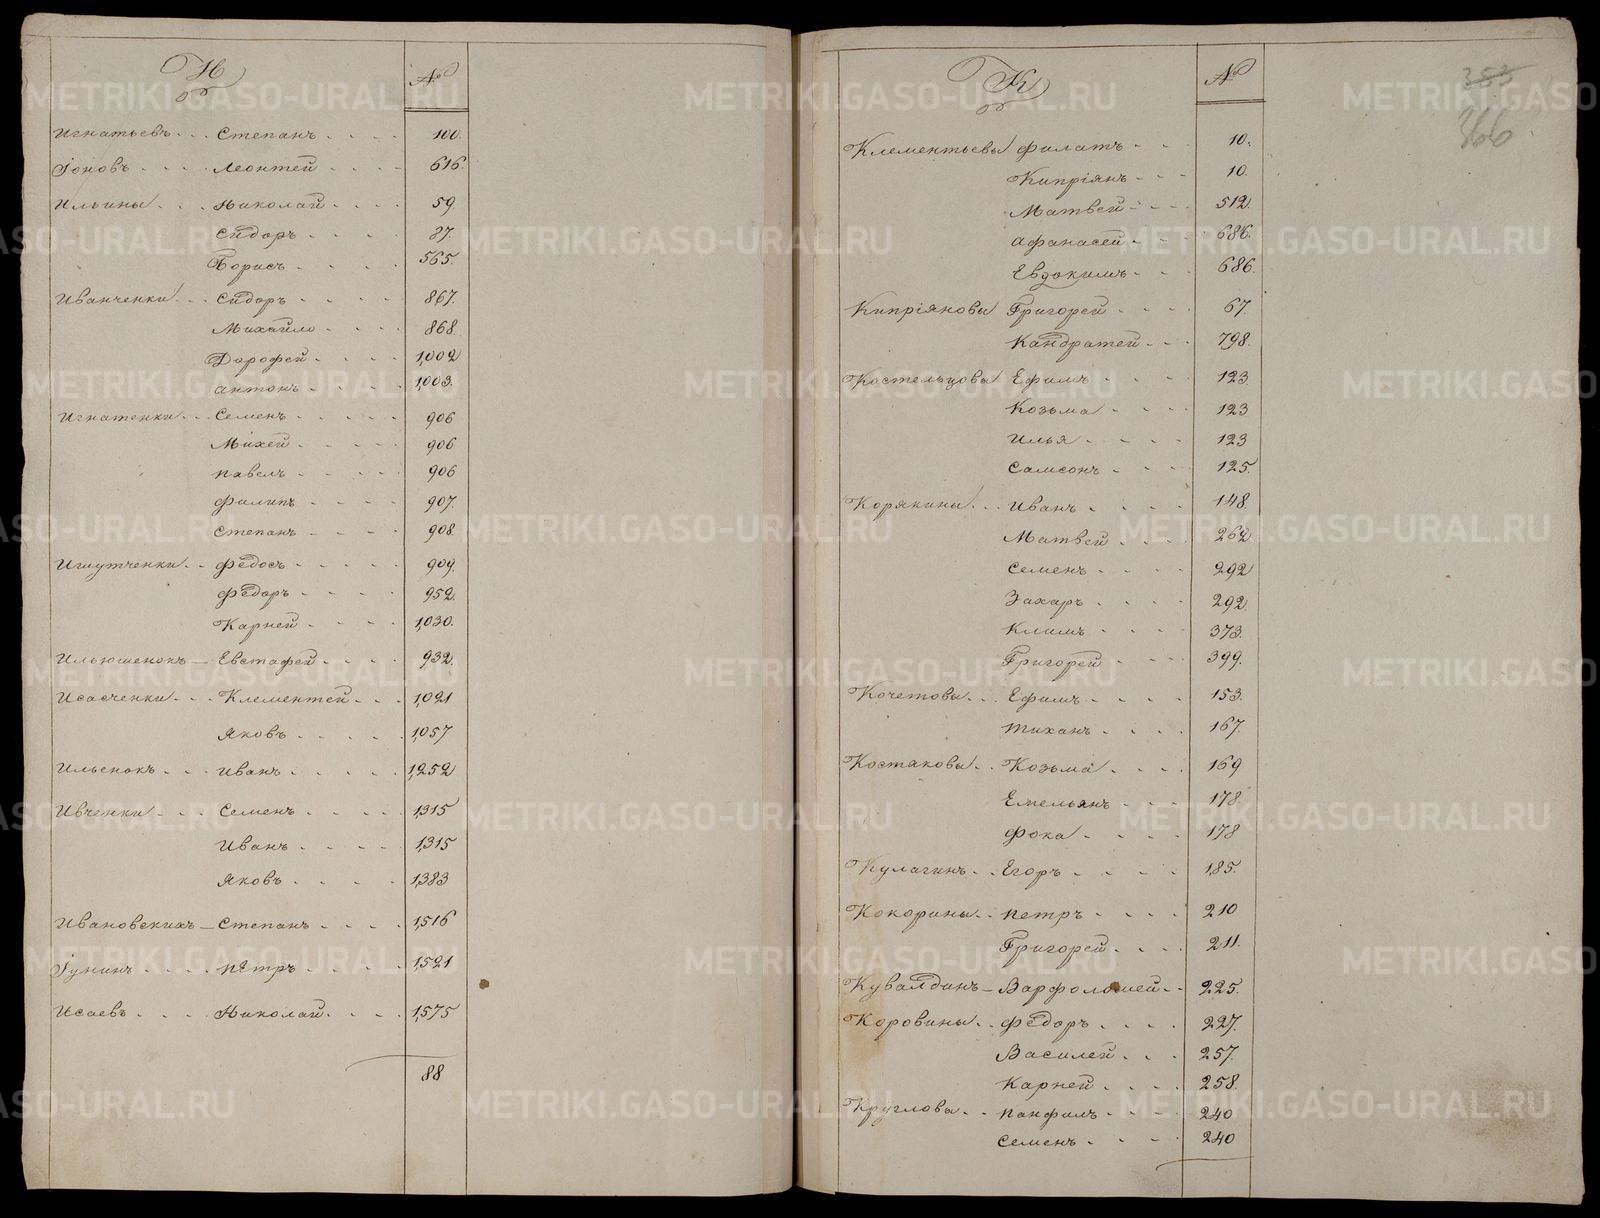 И
№
Игнатьевъ Степанъ 100.
Іоновъ Леонтей 616.
Ильины Николай 59.
Сидоръ 87.
Борисъ 565.
Иванченки Сидоръ 867.
Михайло 868.
Дорофей 1,002
Антонъ 1,003.
Игнатенки Семенъ 906
Михей 906
Павелъ 906
Филипъ 907.
Степанъ 908.
Ишутченки Федосъ 909.
Федоръ 952.
Карней 1,030.
Ильюшенокъ Евстафей 932.
Исасченки Клементей 1,021
Яковъ 1,057
Ильенокъ Иванъ 1,252
Ивченки Семенъ 1,315
Иванъ 1,315
Яковъ 1,383
Ивановскихъ Степанъ 1,516
Іунинъ Петръ 1,521
Исаевъ Николай 1,575
88
К
№
353
366
Клементьевы Филатъ 10.
Кипріянъ 10.
Матвей 512.
Афанасей 686.
Евдокимъ 686.
Кипріяновы Григорей 67.
Кандратей 798.
Костельцовы Ефимъ 123.
Козьма 123
Илья 123
Самсонъ 125.
Корякины Иванъ 148.
Матвей 262.
Семенъ 292
Захаръ 292.
Климъ 373.
Григорей 399.
Кочетовы Ефимъ 153.
Тиханъ 167.
Костяковы Козьма 169
Емельянъ 178.
Фока 178
Кулагинъ Егоръ 185.
Кокорины Петръ 210
Григорей 211.
Кувалдинъ Варфоломей 225.
Коровины Федоръ 227.
Василей 257.
Карней 258.
Кругловы Панфилъ 240
Семенъ 240
METRIKI.GASO-URAL.RU